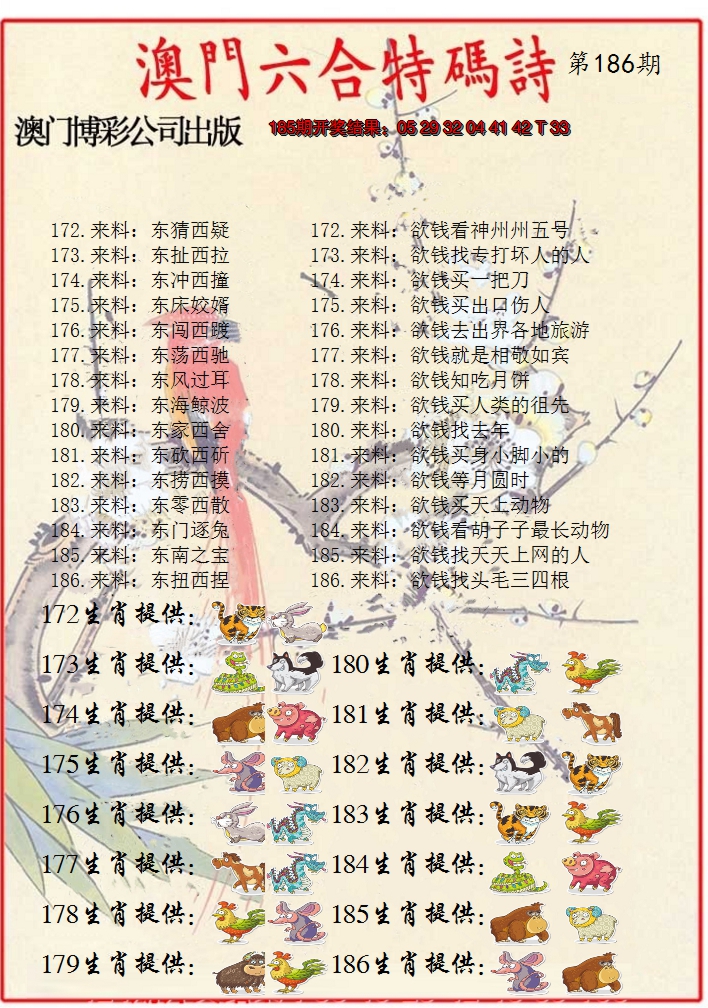 澳門六合特碼詩 第186期
澳门博彩公司出版 185期开奖结果：05 29 32 04 41 42 T 33
172.来料：东猜西疑 172.来料：欲钱看神州州五号
173.来料：东扯西拉 173.来料：欲钱找专打坏人的人
174.来料：东冲西撞 174.来料：欲钱买一把刀
175.来料：东床姣婿 175.来料：欲钱买出口伤人
176.来料：东闯西踱 176.来料：欲钱去出界各地旅游
177.来料：东荡西驰 177.来料：欲钱就是相敬如宾
178.来料：东风过耳 178.来料：欲钱知吃月饼
179.来料：东海鲸波 179.来料：欲钱买人类的祖先
180.来料：东家西舍 180.来料：欲钱找去年
181.来料：东砍西斫 181.来料：欲钱买身小脚小的
182.来料：东捞西摸 182.来料：欲钱等月圆时
183.来料：东零西散 183.来料：欲钱买天上动物
184.来料：东门逐兔 184.来料：欲钱看胡子子最长动物
185.来料：东南之宝 185.来料：欲钱找天天上网的人
186.来料：东扭西捏 186.来料：欲钱找头毛三四根
172生肖提供：
173生肖提供： 180生肖提供：
174生肖提供： 181生肖提供：
175生肖提供： 182生肖提供：
176生肖提供： 183生肖提供：
177生肖提供： 184生肖提供：
178生肖提供： 185生肖提供：
179生肖提供： 186生肖提供：